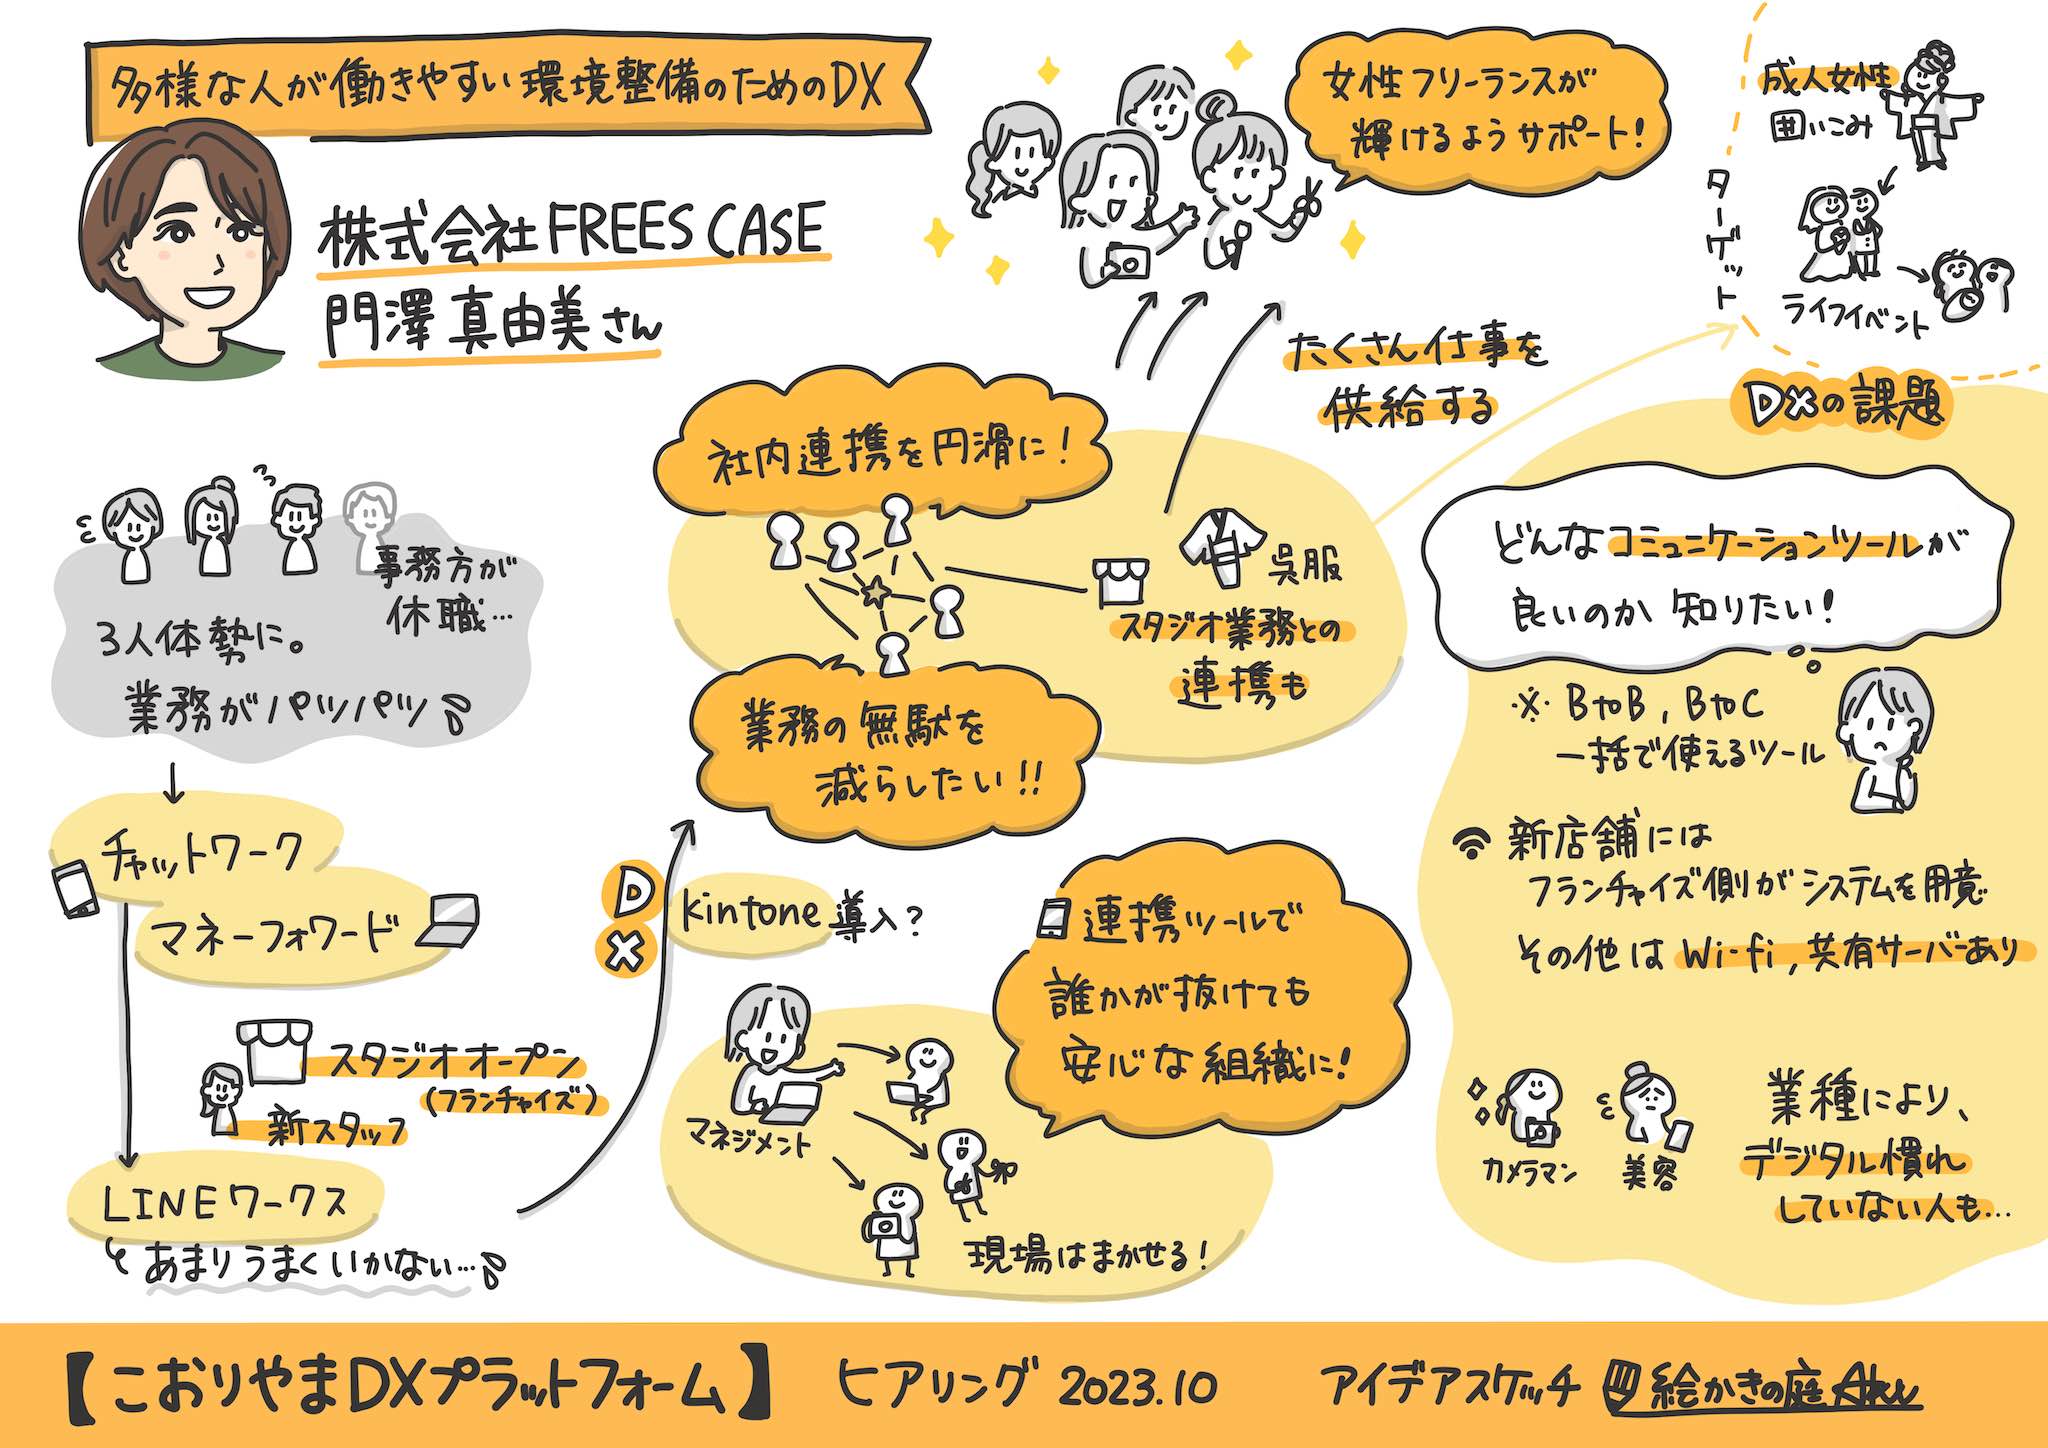 多様な人が働きやすい環境整備のためのDX
株式会社FREES CASE
門澤 真由美さん
事務方が
休職…
3人体勢に。
業務がパツパツ
チャットワーク
マネーフォワード
スタジオオープン
(フランチャイズ)
新スタッフ
LINEワークス
あまりうまくいかない…
DX
kintone導入?
社内連携を円滑に!
業務の無駄を
減らしたい!!
呉服
スタジオ業務との
連携も
マネジメント
現場はまかせる!
連携ツールで
誰かが抜けても
安心な組織に!
女性フリーランスが
輝けるようサポート!
たくさん仕事を
供給する
ターゲット
成人女性
囲いこみ
ライフイベント
DXの課題
どんなコミュニケーションツールが
良いのか知りたい!
※BtoB,BtoC
一括で使えるツール
新店舗には
フランチャイズ側がシステムを用意
その他はWi-fi,共有サーバーあり
カメラマン
美容
業種により、
デジタル慣れ
していない人も…
【こおりやまDXプラットフォーム】 ヒアリング 2023.10 アイデアスケッチ 絵かきの庭 Aku